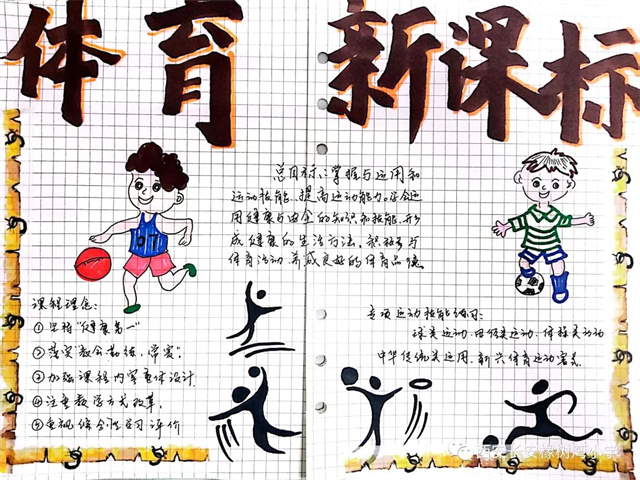 体育 新课标
07
总目标:掌握与运用和
运动技能,提高运动能力。学会运
用健康与安全的知识和技能,形
成健康的生活方法,积极参与
体育活动,养成良好的体育品德。
课程理念:
①坚持"健康第一"
②落实"教会、勤练、常赛"
③加强课程内容整体设计
④注重教学方式改革
⑤重视综合性学习评价
专项运动技能练习:
球类运动、田径类运动、体操类运动
中华传统类运动、新兴体育运动